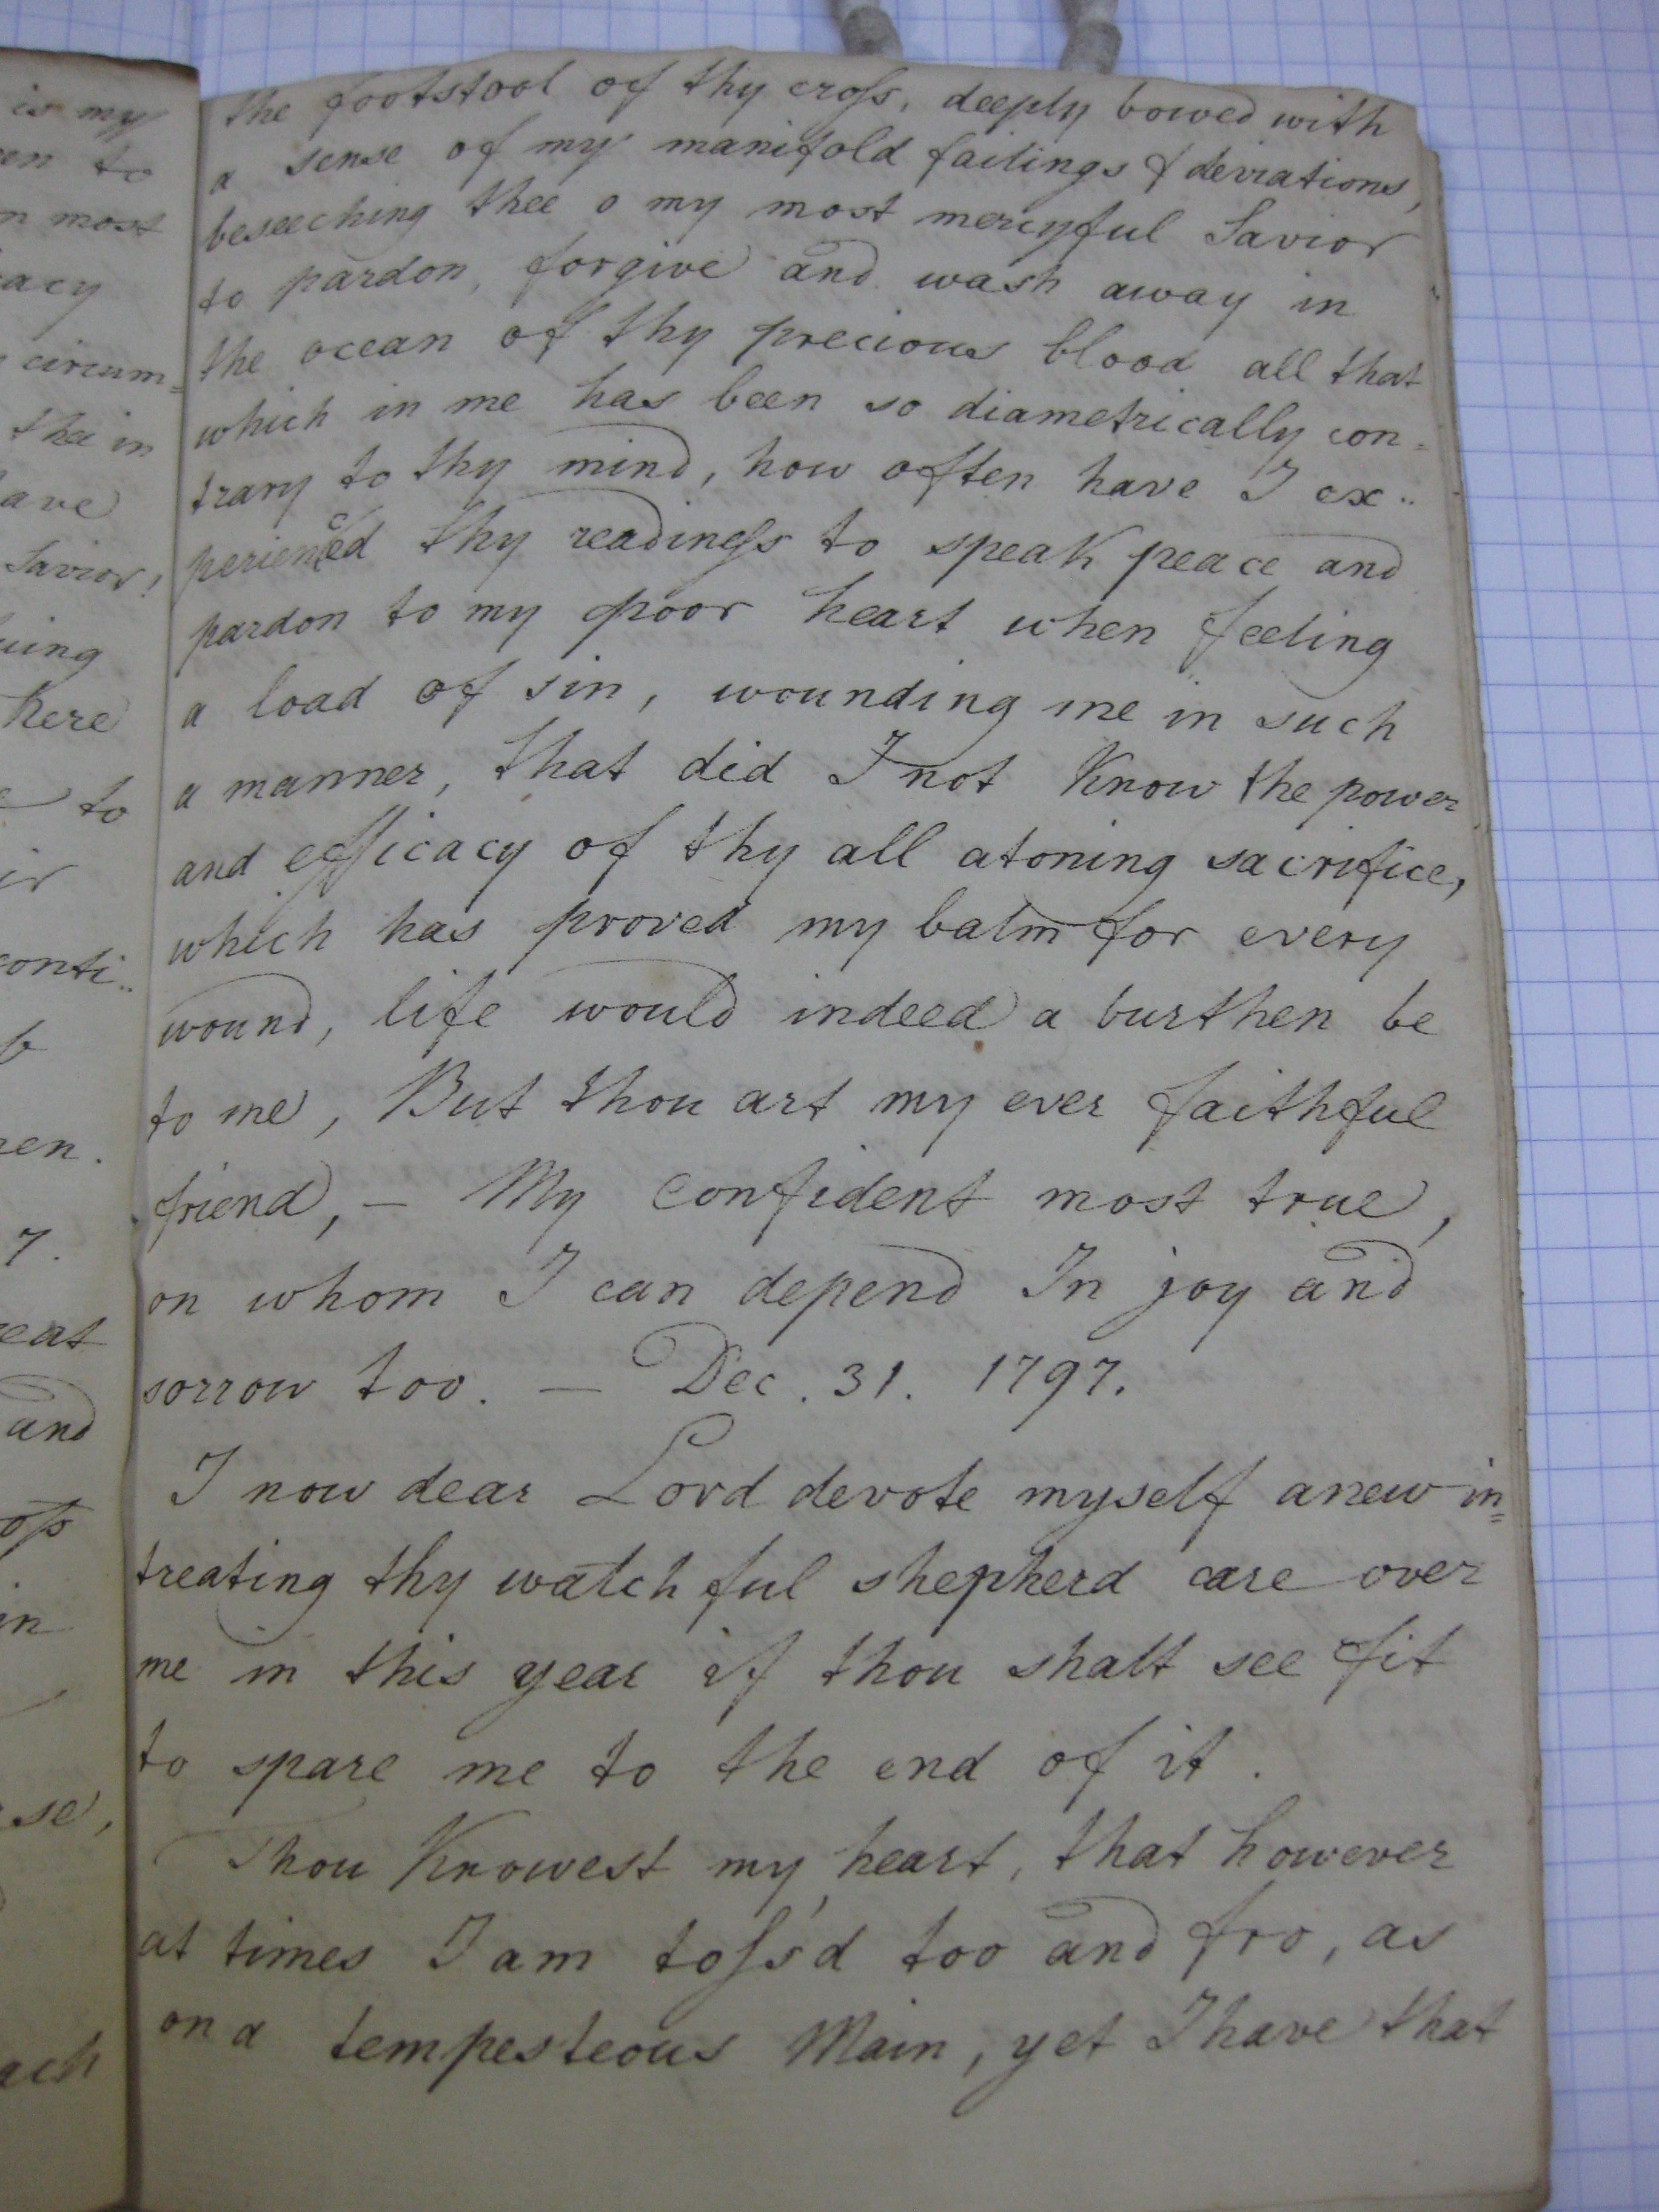 the footstool of thy cross, deeply bowed with
a sense of my manifold failings & deviations,
beseeching thee o my most mercyful Savior
to pardon, forgive and wash away in
the ocean of thy precious blood all that
which in me has been so diametrically con=
trary to thy mind, how often have I ex..
perienced thy readiness to speak peace and
pardon to my poor heart when feeling
a load of sin, wounding me in such
a manner, that did I not Know the power
and efficacy of thy all atoning sacrifice,
which has proved my balm for every
wound, life would indeed a burthen be
to me, But thou art my ever faithful
friend, — My confident most true,
on whom I can depend In joy and
sorrow too. — Dec. 31. 1797.
I now dear Lord devote myself anew in=
treating thy watchful shepherd care over
me in this year if thou shalt see fit
to spare me to the end of it.
Thou Knowest my heart, that however
at times I am toss'd too and fro, as
on a tempesteous Main, yet I have that
is my
to
most
acy
circum=
thee in
ave
Savior!
here
to
conti..
7.
eat
and
in
se,